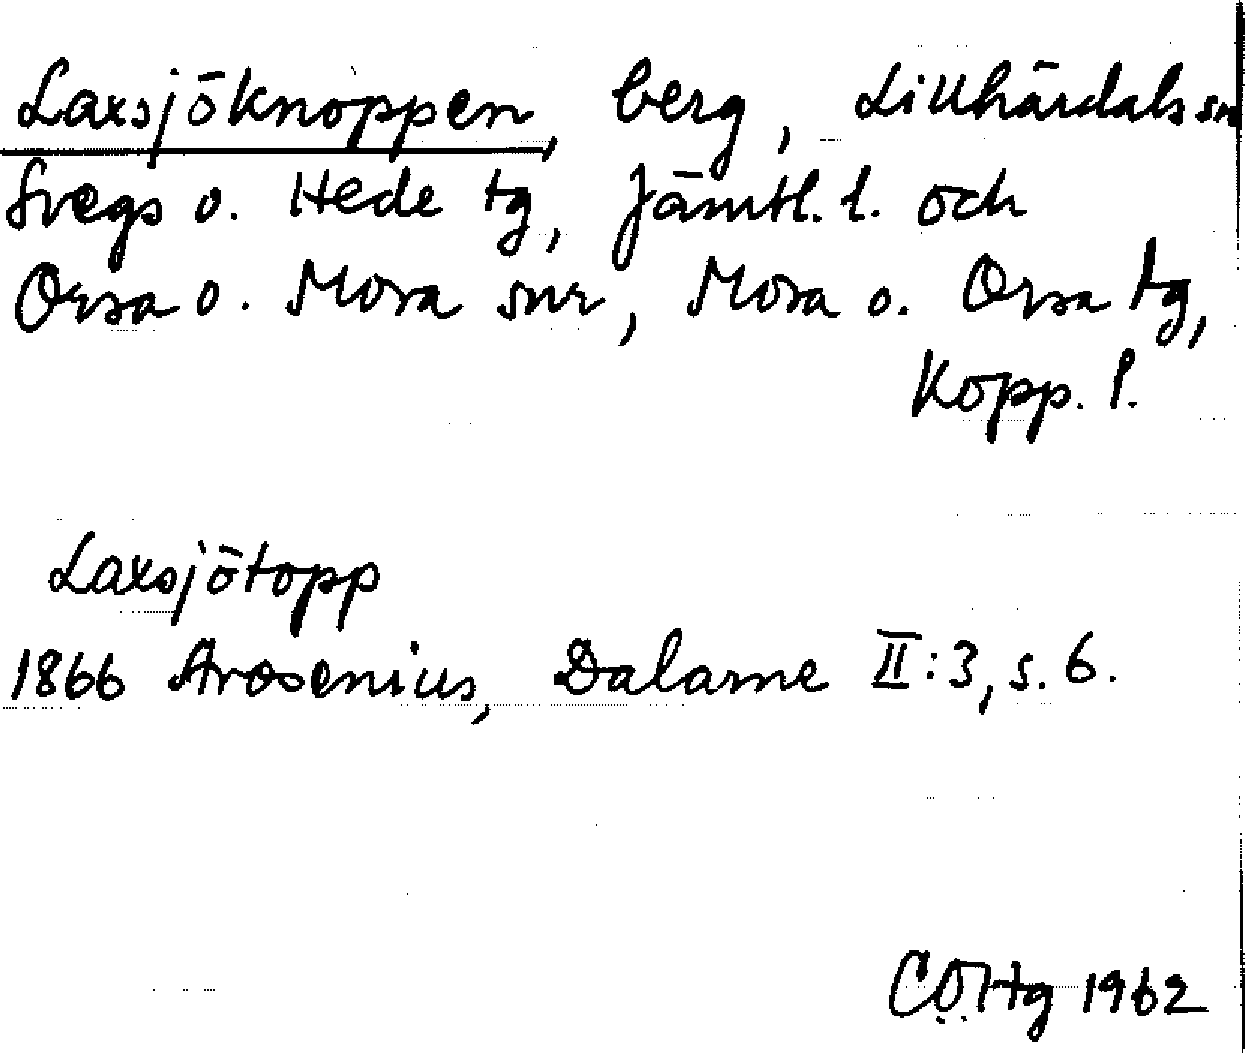 Laxsjöknoppen, berg, Lillhärdals sn
Svegs o. Hede tg, Jämtl. l. och
Orsa o. Mora snr, Mora o. Orsa tg,
Kopp. l.
Laxsjötopp
1866 Arosenius, Dalarne II:3, s. 6.
1962